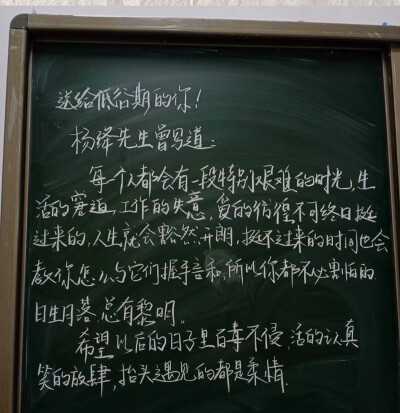 送给低谷期的你！
杨绛先生曾写道：
每个人都会有一段特别艰难的时光，生
活的窘迫，工作的失意，爱的彷徨不可终日挺
过来的，人生就会豁然开朗，挺不过来的时间也会
教你怎么与它们握手言和，所以你都不必害怕的.
日生月落总有黎明。
希望以后的日子里百毒不侵，活的认真
笑的放肆，抬头遇见的都是柔情.